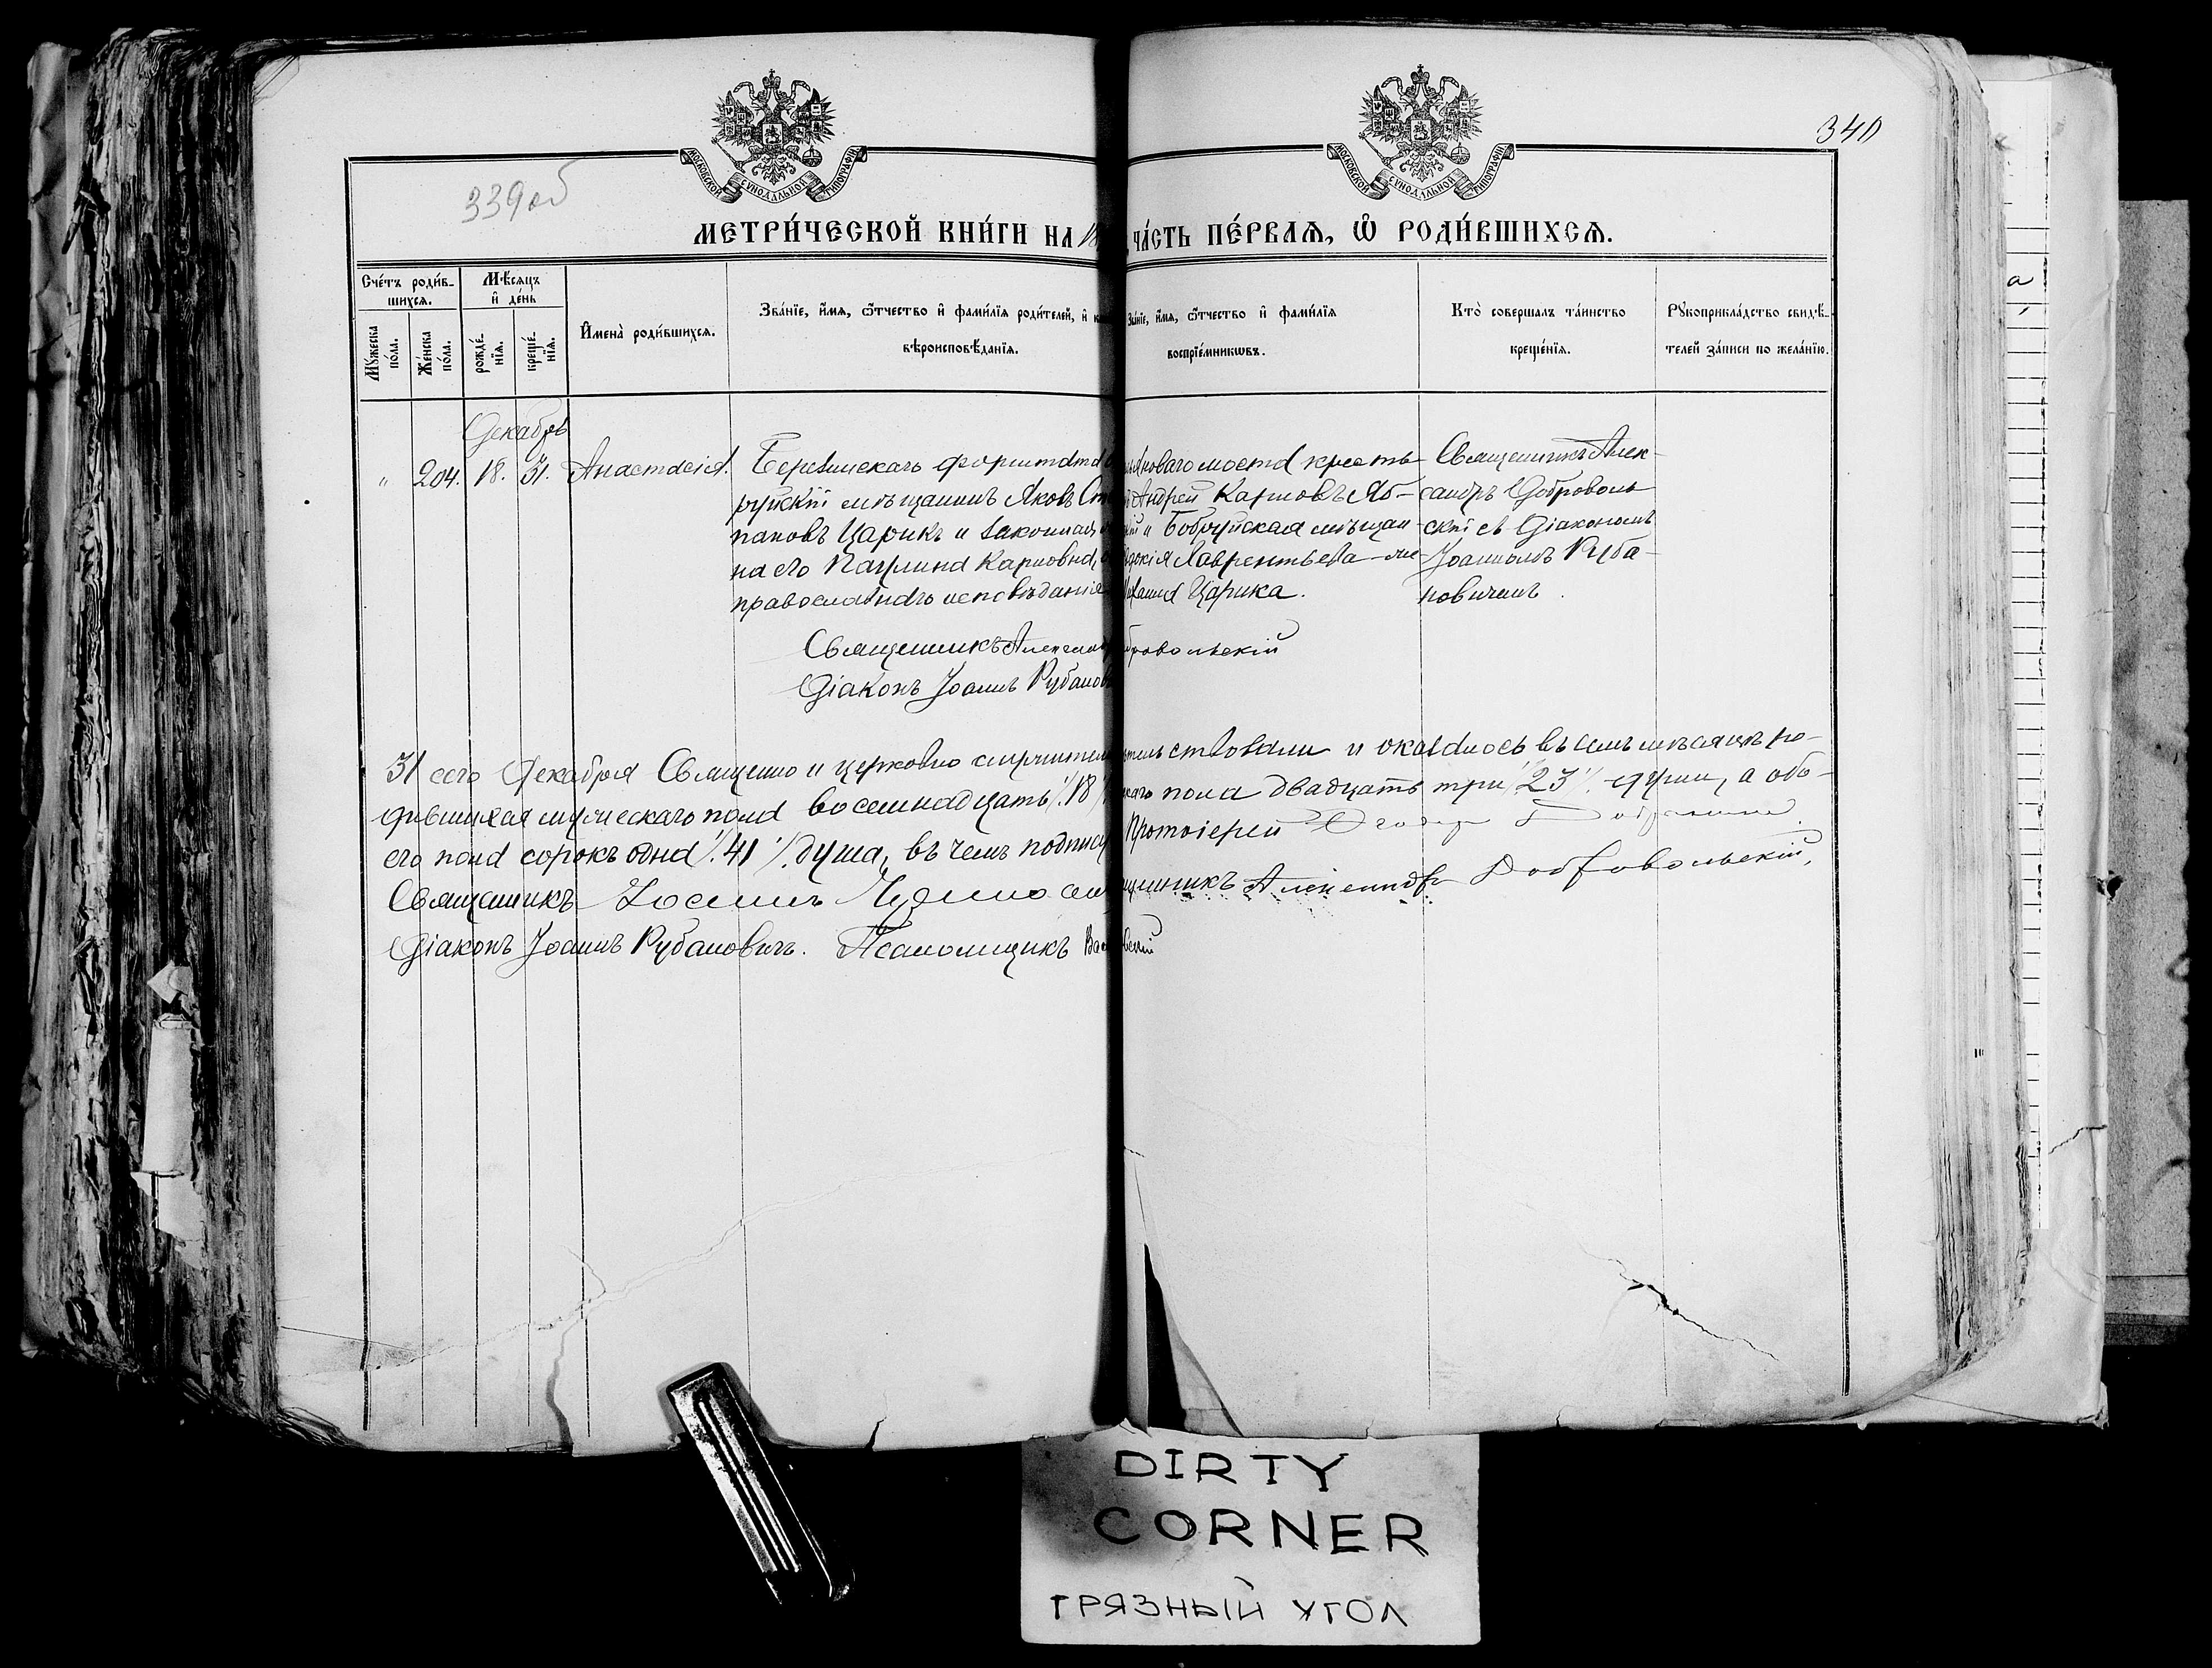 340
339об
МОСКОВСКОЙ СѴНОДАЛЬНОЙ ТИПОГРАФІИ
МОСКОВСКОЙ СѴНОДАЛЬНОЙ ТИПОГРАФІИ
МЕТРИ́ЧЕСКОЙ КНИ́ГИ НА 18
ЧА́СТЬ ПЕ́РВАѦ, Ѽ РОДИ́ВШИХСѦ.
Сче́тъ роди́в-
шихсѧ.
Мꙋ́жеска по́ла.
Же́нска по́ла.
Мѣ́сѧцъ
и҆ де́нь
рожде́-
нїѧ.
креще́-
нїѧ.
И҆мена̀ роди́вшихсѧ.
Зва́нїе, и҆́мѧ, ѻ҆́тчество и҆ фами́лїѧ роди́телей, и҆
вѣроисповѣ́данїѧ.
Зва́нїе, и҆́мѧ, ѻ҆́тчество и҆ фами́лїѧ
воспрїе́мникѡвъ.
Кто̀ соверша́лъ та́инство
креще́нїѧ.
Рꙋкоприкла́дство свидѣ́-
телей за́писи по жела́нїю.
Декабрь
" 204. 18. 31. Анастасія.
Березинскаго форштата
руйскій мѣщанинъ Яковъ Сте
пановъ Царикъ и законная
на его Паулина Карповна,
православнаго исповѣданія
новаго моста кресть
Андрей Карповъ Яб-
и Бобруйская мѣщан-
Лаврентьева - же-
Царика.
Священникъ Алек-
сандръ Доброволь
скій съ Діакономъ
Іоанномъ Руба-
новичемъ.
Священникъ Александръ Добровольскій
Діаконъ Іоаннъ Рубанов
31 сего Декабря Священно и церковно служители
тельствовали и оказалось въ семъ мѣсяцѣ ро-
дившихся мужескаго пола восемнадцать /.18
скаго пола двадцать три /.23 /. души, а обо-
его пола сорокъ одна /.41 /. душа, въ чемъ подпису
Протоіерей
Священникъ Іоаннъ
щенникъ Александръ Добровольскій,
Діаконъ Іоаннъ Рубановичъ. Псаломщикъ
DIRTY
CORNER
ГРЯЗНЫЙ УГОЛ